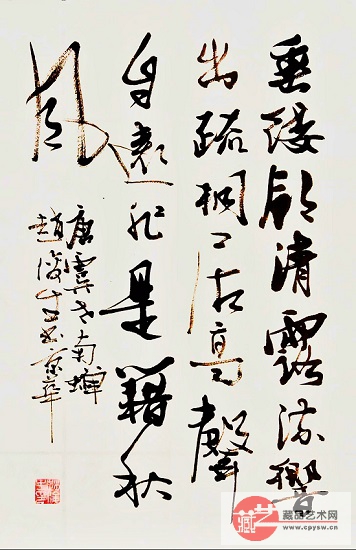 垂緌飲清露流響
出疏桐居高聲
自遠非是籍秋
風
唐虞世南蟬
趙俊生书京華
藏艺
藏品艺术网
www.cpysw.cn